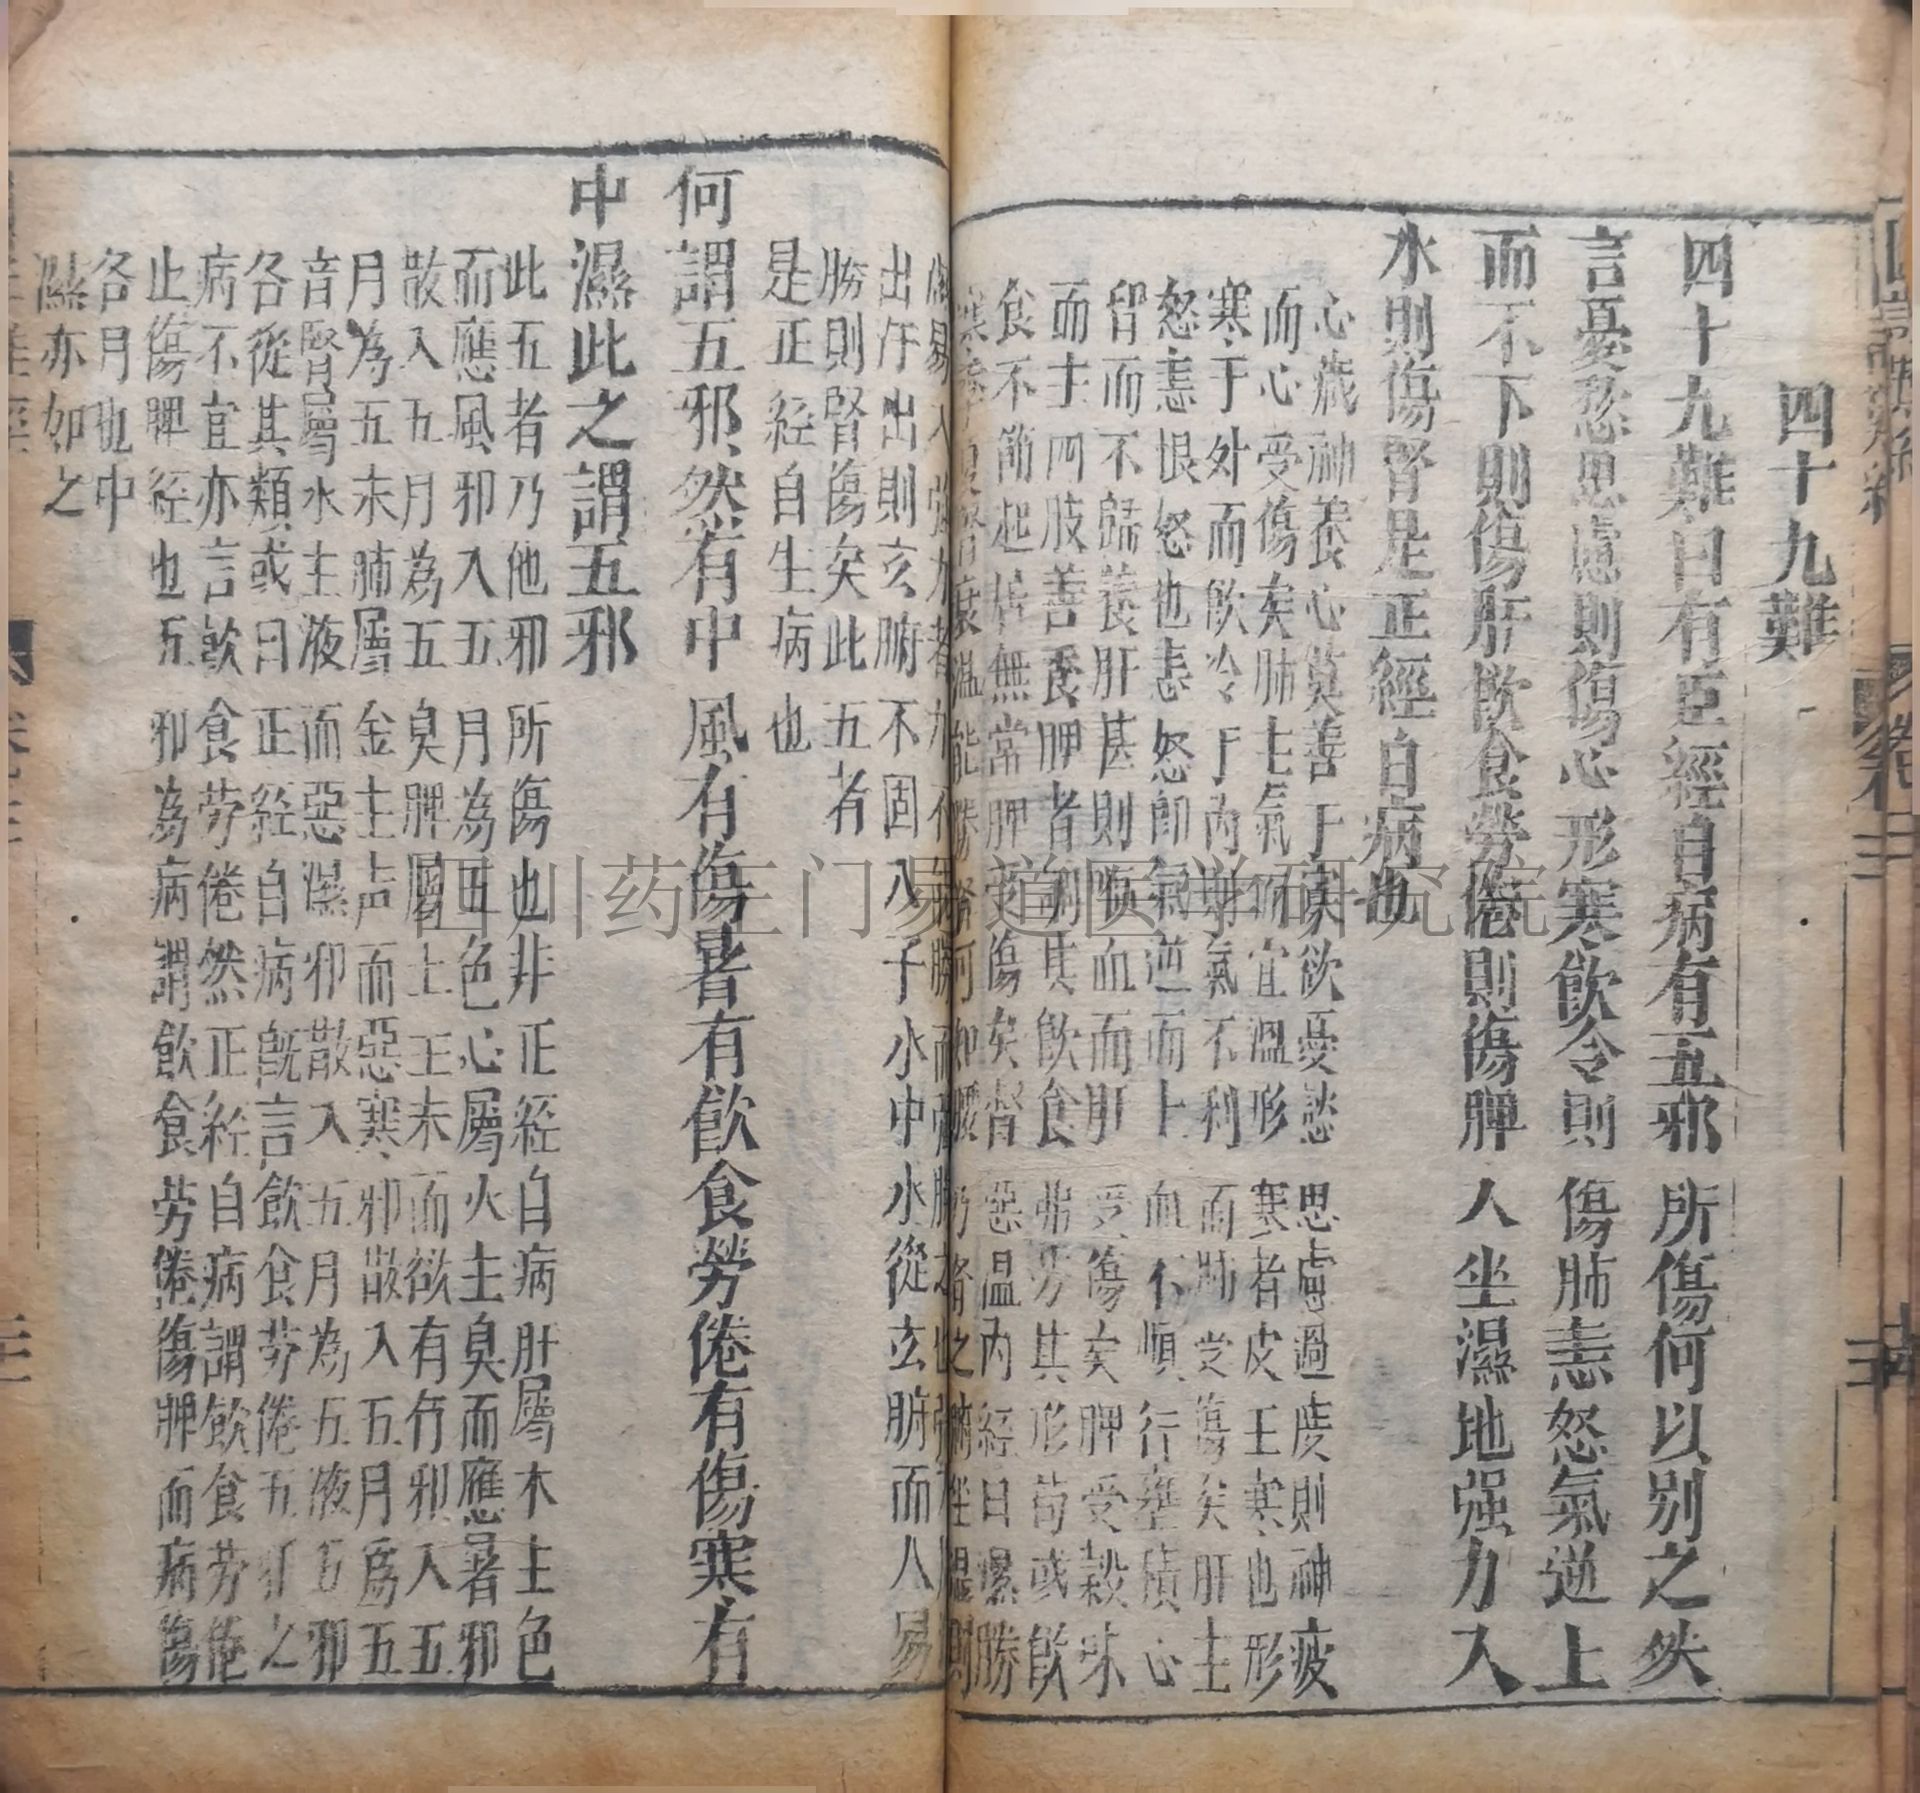 四十九難
四十九難曰有正經自病有五邪所傷何以別之然
言憂愁思慮則傷心形寒飲冷則傷肺恚怒氣逆上
而不下則傷肝飲食勞倦則傷脾人坐濕地强力入
水則傷腎是正經自病也
心藏神養心莫善于寡欲憂愁思慮過度則神疲
而心受傷矣肺主氣而宜溫形寒者皮主寒也形
寒于外而飲冷于內則氣不利而肺受傷矣肝主
怒恚恨怒也恚怒卽氣逆而上血不順行壅積心
留而不歸養肝甚則嘔血而肝受傷矣脾受穀味
而主四肢善養脾者調其飲食弗勞其形苟或飲
食不節起居無常脾受傷矣腎惡溫內經曰濕勝
出汗出則玄腑不固八子水中水從玄腑而入易
勝則腎傷矣此五者
是正經自生病也
何謂五邪然有中風有傷暑有飲食勞倦有傷寒有
中濕此之謂五邪
此五者乃他邪所傷也非正經自病肝屬木主色
而應風邪入五月為五色心屬火主臭而應暑邪
散入五月為五臭脾屬土主未而欲有竹邪入五
月為五未肺屬金主声而惡寒邪散入五月爲五
音腎屬水主液而惡濕邪散入五月為五液五邪
各從其類或曰正經自病旣言飲食劳倦五邪之
病不宜亦言飲食劳倦然正經自病謂飲食劳倦
止傷脾經也五邪為病謂飲食劳倦傷脾而病傷
各月也中
濕亦如之
四川药王门易道医学研究院